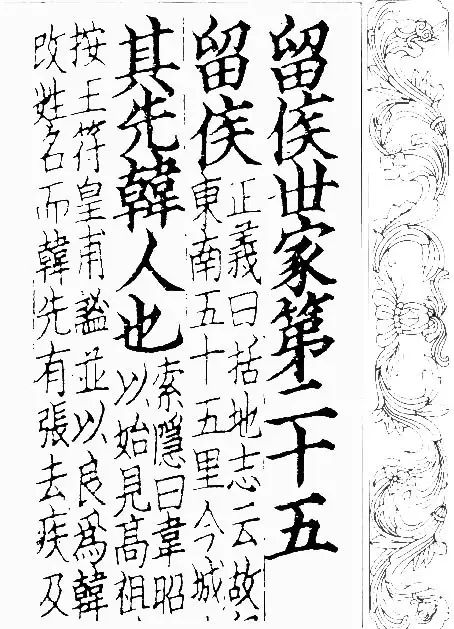 留侯世家第二十五
留侯
正義曰括地志云故
東南五十五里今城
其先韓人也
索隱曰韋昭
以始見高祖
按王符皇甫謐並以良爲韓
改姓名而韓先有張去疾及